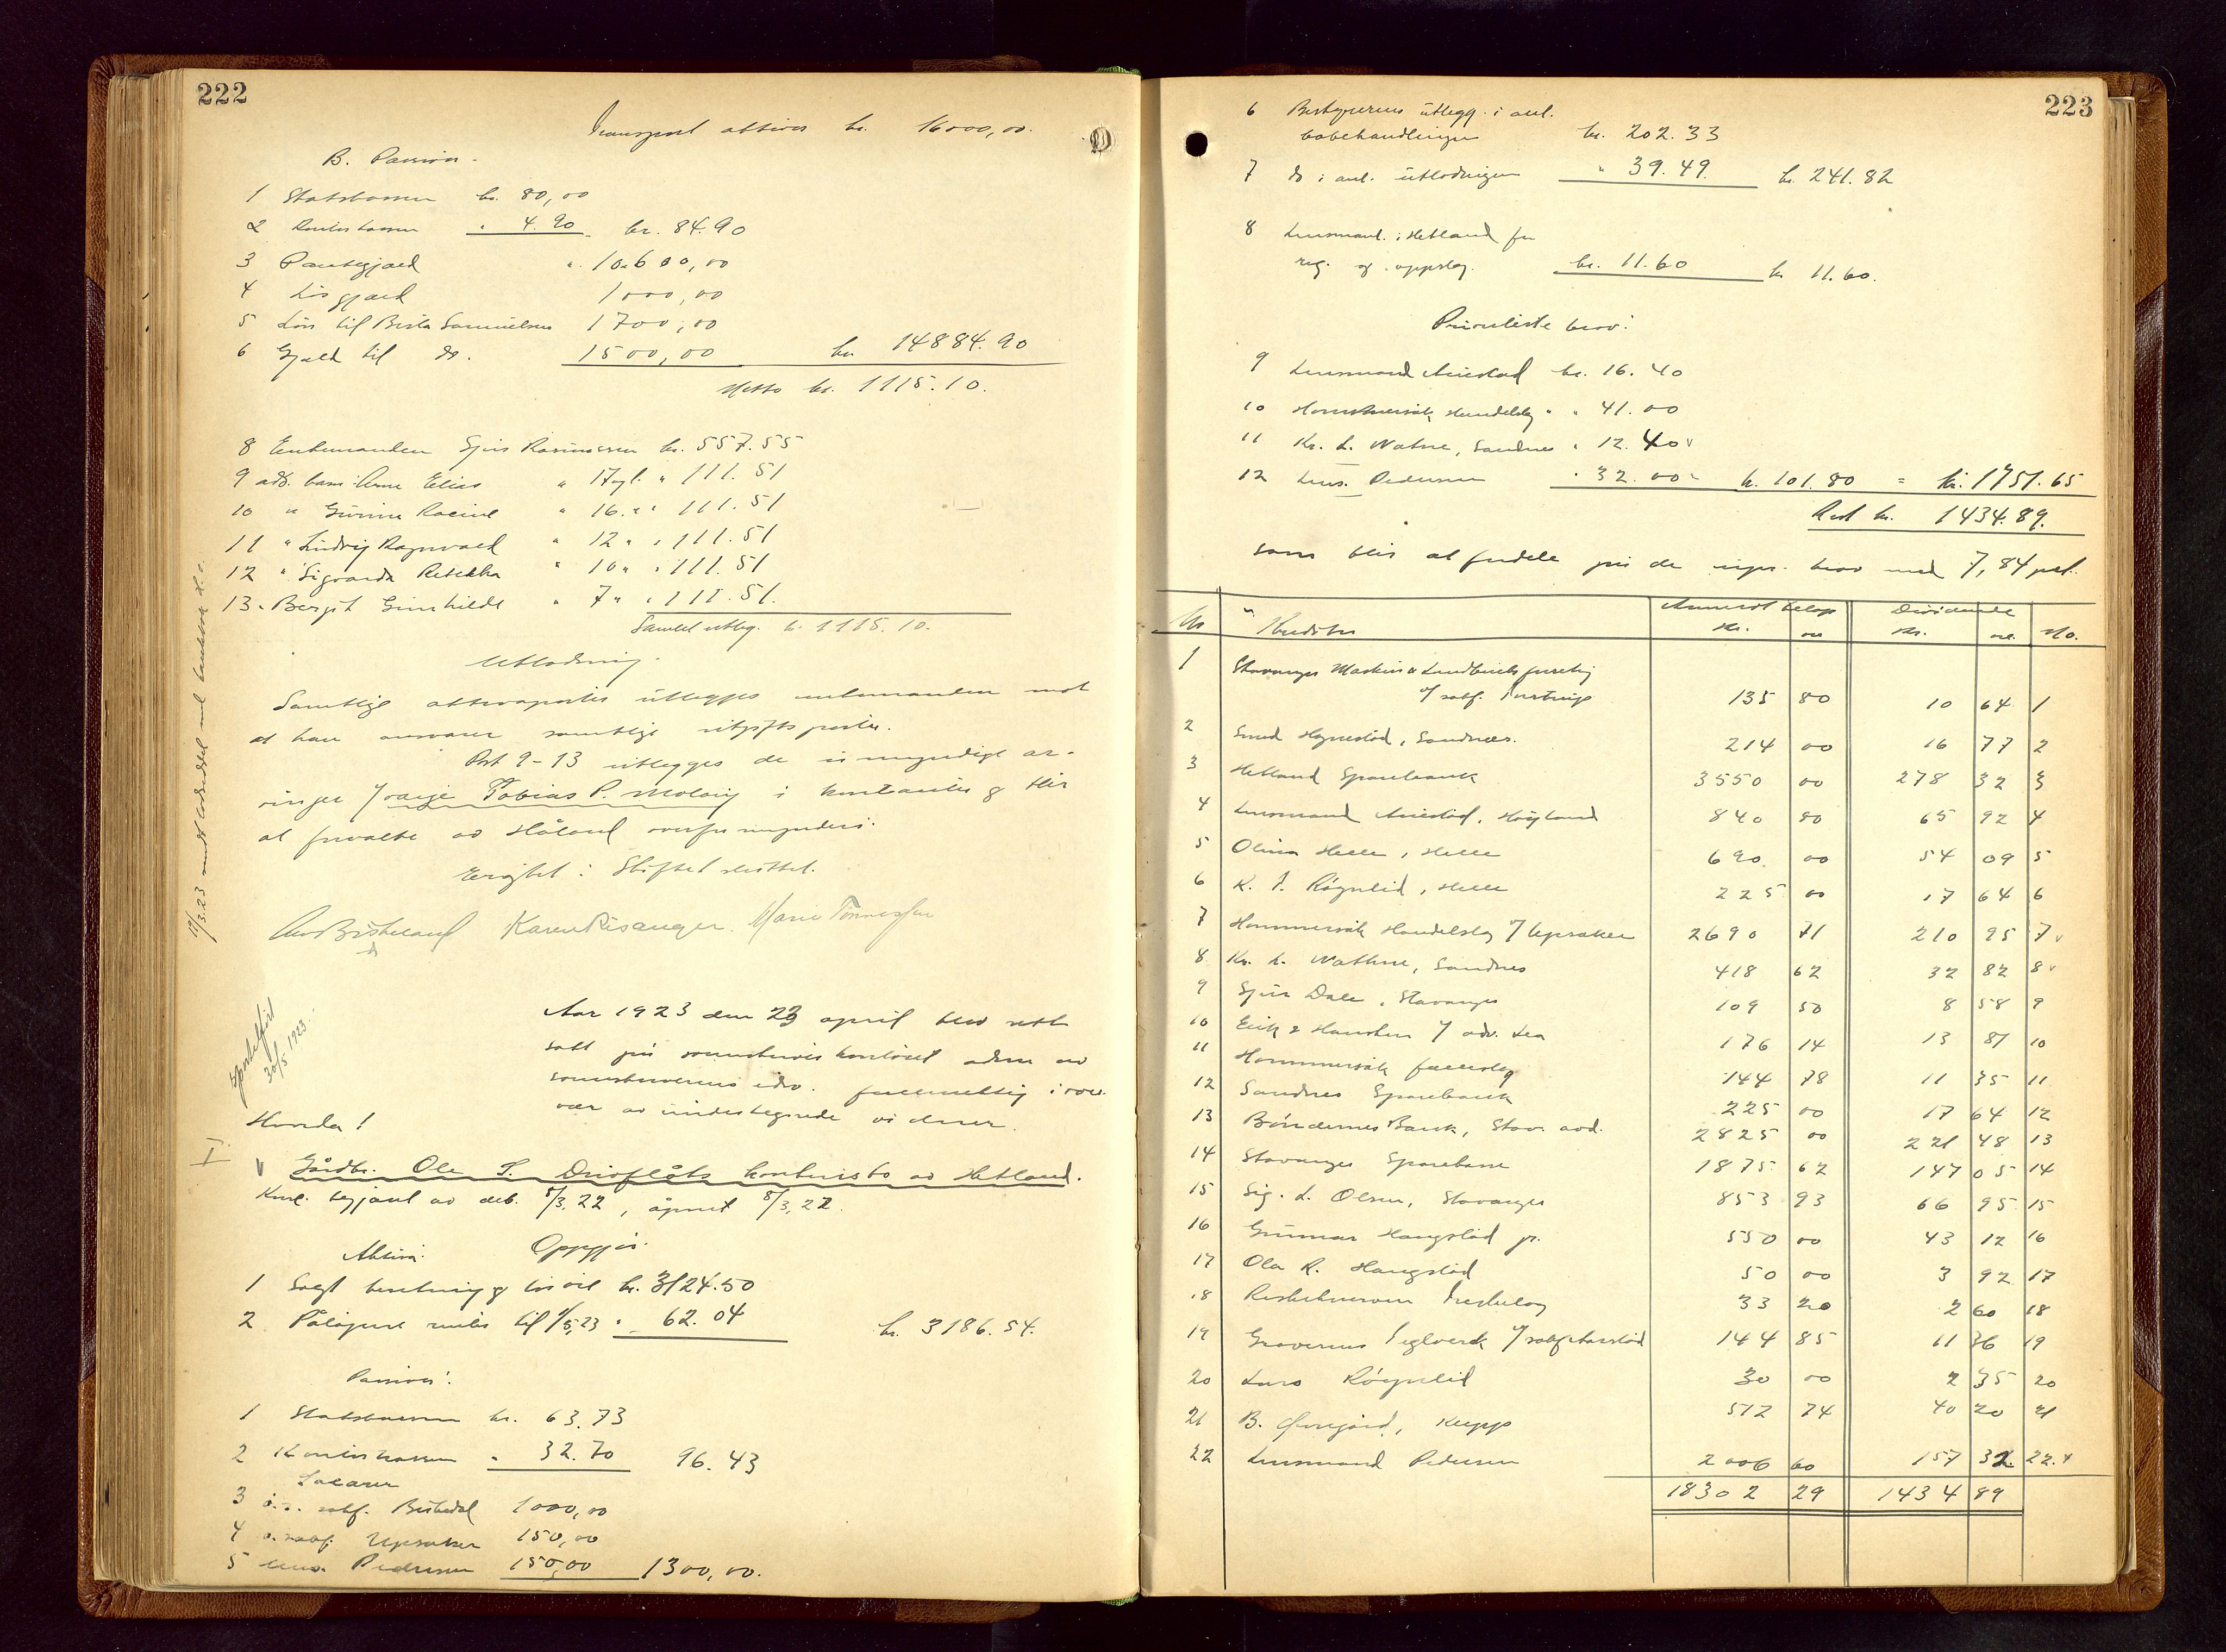 222
Transport aktiva kr. 16000,00.
B. Passiva.
1 Statskassen kr. 80,00
2 Amtskassen " 4.90 kr. 84.90
3 Pantegjæld ". 10.600,00
4 Løs gjæld 1000,00
5 Løn til Berta Samuelsen 1700,00
6 Gjæld til do. 1500,00 kr. 14884.90
Netto kr. 1115.10.
8 Enkemanden Sjur Rasmussen kr. 557.55
9 adb. barn: Arne Elias " 17 gl. " 111.51
10 " Gurine Racine " 16. " " 111.51
11 " Ludvig Ragnvald " 12 " " 111.51
12 " Sigvarda Rebekka " 10 " " 111.51
13 " Bergit Gunhilde " 7 " " 111.51.
Samlet utlæg. kr. 1115.10.
Utlodning.
Samtlige aktivaposter utlegges enkemanden mot
at han ansvarer samtlige utgiftsposter.
Post 9-13 utlegges de umyndige ar-
vinger v/ verge Tobias P. Molaug i kontanter & blir
at forvalte av Håland overformynderi.
Erigtet: Skiftet sluttet.
Karen Risanger. Marie Tønnessen
Aar 1923 den 23 april blev rett
satt på sorenskriverkontoret adm. av
sorenskriverens edsv. fuldmektig i over-
vær av undertegnede vidner.
Sportelført
30/5 1923.
Hvorda!
I
V Gårdbr. Ole T. Drivflåts konkursbo av Hetland.
Konk. begjært av deb. 8/3.22, åpnet 8/3.22.
Aktiva. Oppgjør.
1 Solgt besetning & løsøre kr. 3124.50
2 Påløpne renter til 1/5.23 " 62.04 kr. 3186.54.
Passiva:
1 Statskassen kr. 63.73
2 Amtskassen " 32.70 96.43
Salærer
3 o.r. sakf. Birkedal 1000,00
4 o. sakf. Upsaker 150,00
5 lensm. Pedersen 150,00 1300,00.
223
6 Bestyrerens utlegg i anl.
bobehandlingen kr. 202.33
7 do i anl. utlodningen " 39.49. kr. 241.82
8 Lensmand. i Hetland for
reg. og oppslag. kr. 11.60 kr 11.60.
Priviligerte krav:
9 Lensmand Auestad kr. 16.40
10 Hommersåk Handelslag " " 41.00
11 Kr. L. Watne, Sandnes " 12.40 v
12 Lens. Pedersen " 32.00 kr. 101.80 = kr. 1751.65
Rest kr. 1434.89.
som blir at fordele på de uprior. krav med 7,84 pct.
No Kreditor Anmeldt beløp Kr. øre Dividende Kr. øre No.
1 Stavanger Maskin & Landbruksforretn.
v/ sakf. 135 80 10 64 1
2 Smed Høynestad, Sandnes. 214 00 16 77 2
3 Hetland Sparebank 3550 00 278 32 3
4 Lensmand Auestad, Høyland 840 80 65 92 4
5 Olina Helle, Helle 690. 00 54 09 5
6 K. T. Røyneli​d, Helle 225 00 17 64 6
7 Hommersåk Handelslag v/ Upsaker 2690 71 210 95 7 v
8 Kr. L. Wathne, Sandnes 418 62 32 82 8 v
9 Sjur Dale, Stavanger 109 50 8 58 9
10 Erik & Hausken v/ adv. Lea 176 14 13 81 10
11 Hommersåk fælleslag 144 78 11 35 11
12 Sandnes Sparebank 225 00 17 64 12
13 Bøndernes Bank, Stav. avd. 2825 00 221 48 13
14 Stavanger Sparekasse 1875 62 147 05 14
15 Sig. L. Olsen, Stavanger 853 93 66 95 15
16 Gunnar Haugstad jr. 550 00 43 12 16
17 Ola R. Haugstad 50 00 3 92 17
18 33 20 2 60 18
19 Graverens Teglverk v/ sakf. Aarstad 144 85 11 36 19
20 Lars Røynelid 30 00 2 35 20
21 B. Øvregård, Klepp 512 74 40 20 21
22 Lensmand Pedersen 2006 60 157 32 22. v
18302 29 1434 89